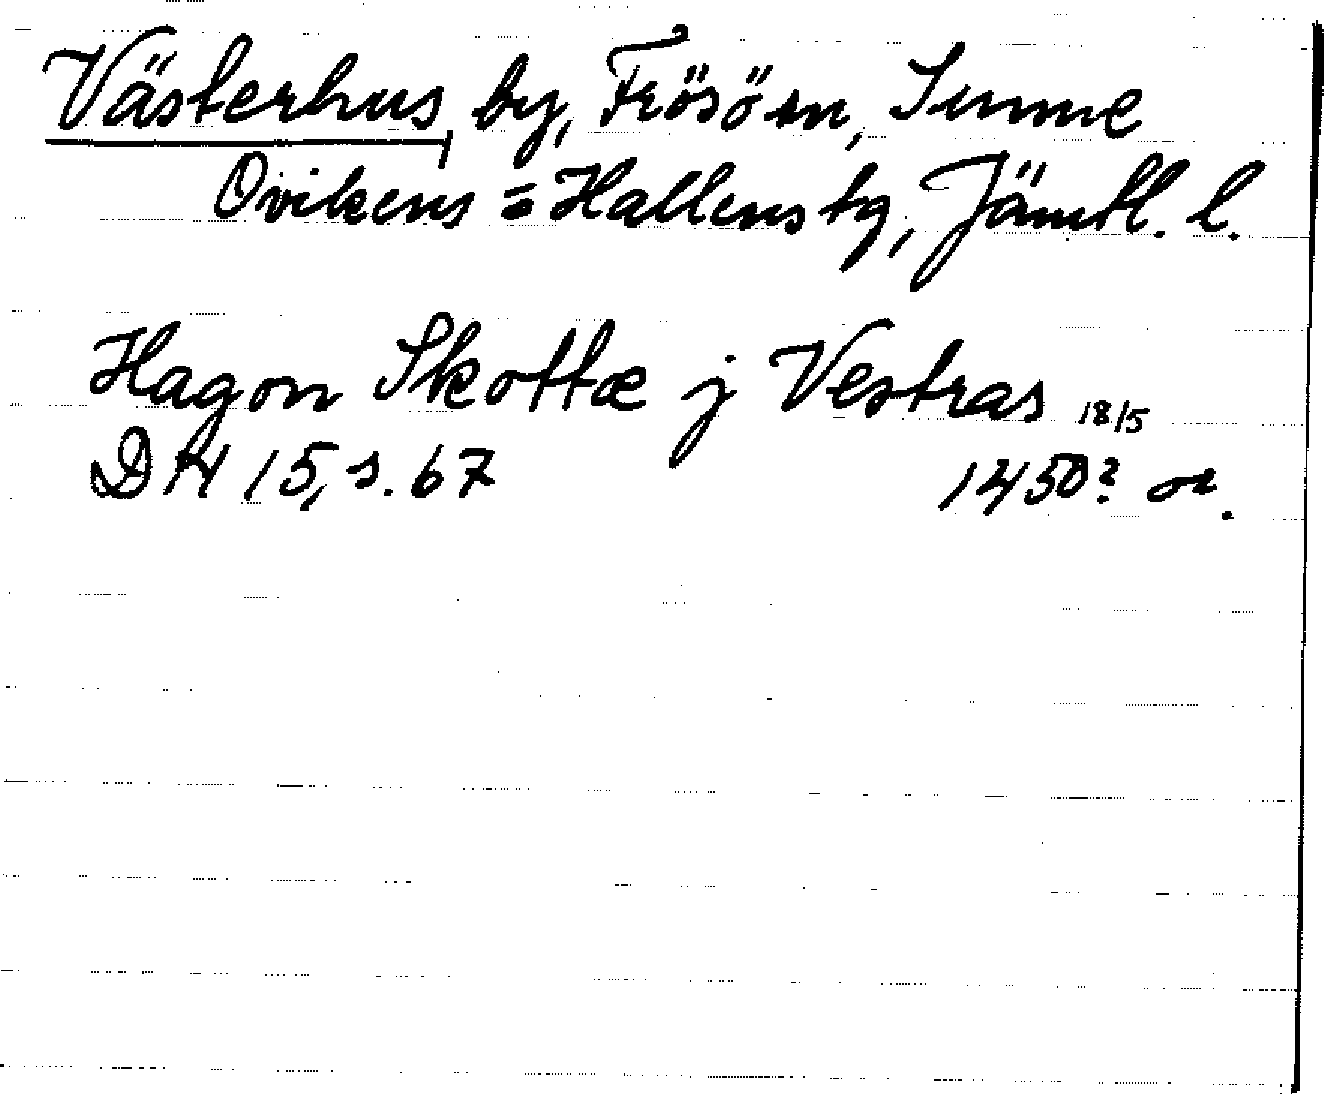 Västerhus by, Frösön, Sunne
Ovikens = Hallens tg, Jämtl. l.
Hagon Skottæ j Vestras 18/5
DN 15, s. 67 1450? or.